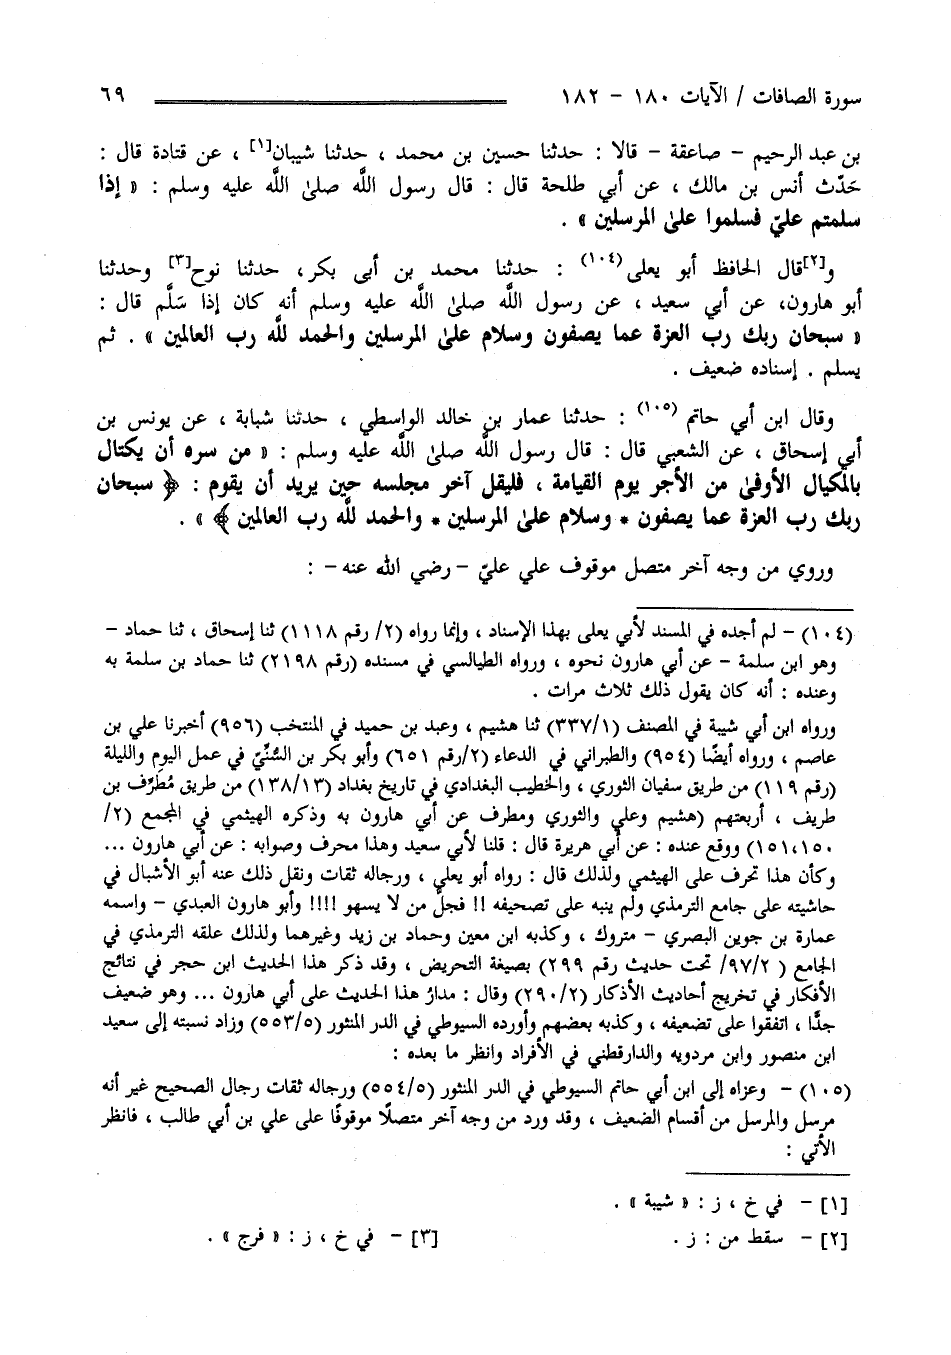 سورة الصافات / الآيات ١٨٠ - ١٨٢ ٦٩
بن عبد الرحيم - صاعقة - قالا : حدثنا حسين بن محمد ، حدثنا شيبان[١] ، عن قتادة قال :
حَدّث أنس بن مالك ، عن أبي طلحة قال : قال رسول اللَّه صلى اللَّه عليه وسلم : « إذا
سلمتم عليّ فسلموا على المرسلين » .
و[٢]قال الحافظ أبو يعلى(١٠٤) : حدثنا محمد بن أبى بكر، حدثنا نوح[٣] وحدثنا
أبو هارون، عن أبي سعيد ، عن رسول اللَّه صلى اللَّه عليه وسلم أنه كان إذا سَلَّم قال :
« سبحان ربك رب العزة عما يصفون وسلام على المرسلين والحمد للَّه رب العالمين » . ثم
يسلم . إسناده ضعيف .
وقال ابن أبي حاتم (١٠٥) : حدثنا عمار بن خالد الواسطي ، حدثنا شبابة ، عن يونس بن
أبي إسحاق ، عن الشعبي قال : قال رسول اللَّه صلى اللَّه عليه وسلم : « من سره أن يكتال
بالمكيال الأوفى من الأجر يوم القيامة ، فليقل آخر مجلسه حين يريد أن يقوم : ﴿ سبحان
ربك رب العزة عما يصفون * وسلام على المرسلين * والحمد للَّه رب العالمين ﴾ » .
وروي من وجه آخر متصل موقوف علي عليّ - رضي الله عنه - :
(١٠٤) - لم أجده في المسند لأبي يعلى بهذا الإسناد ، وإنما رواه (٢/ رقم ١١١٨) ثنا إسحاق ، ثنا حماد -
وهو ابن سلمة - عن أبي هارون نحوه ، ورواه الطيالسي في مسنده (رقم ٢١٩٨) ثنا حماد بن سلمة به
وعنده : أنه كان يقول ذلك ثلاث مرات .
ورواه ابن أبي شيبة في المصنف (٣٣٧/١) ثنا هشيم ، وعبد بن حميد في المنتخب (٩٥٦) أخبرنا علي بن
عاصم ، ورواه أيضًا (٩٥٤) والطبراني في الدعاء (٢/رقم ٦٥١) وأبو بكر بن السُّنِّيّ في عمل اليوم والليلة
(رقم ١١٩) من طريق سفيان الثوري ، والخطيب البغدادي في تاريخ بغداد (١٣٨/١٣) من طريق مُطَرِّف بن
طريف ، أربعتهم (هشيم وعلي والثوري ومطرف عن أبي هارون به وذكره الهيثمي في المجمع (٢/
١٥١،١٥٠) ووقع عنده : عن أبي هريرة قال : قلنا لأبي سعيد وهذا محرف وصوابه : عن أبي هارون ...
وكأن هذا تحرف على الهيثمي ولذلك قال : رواه أبو يعلي ، ورجاله ثقات ونقل ذلك عنه أبو الأشبال في
حاشيته على جامع الترمذي ولم ينبه على تصحيفه !! فجلَّ من لا يسهو !!!! وأبو هارون العبدي - واسمه
عمارة بن جوين البصري - متروك ، وكذبه ابن معين وحماد بن زيد وغيرهما ولذلك علقه الترمذي في
الجامع ( ٩٧/٢/ تحت حديث رقم ٢٩٩) بصيغة التحريض ، وقد ذكر هذا الحديث ابن حجر في نتائج
الأفكار في تخريج أحاديث الأذكار (٢٩٠/٢) وقال : مدارُ هذا الحديث على أبي هارون ... وهو ضعيف
جدًّا ، اتفقوا على تضعيفه ، وكذبه بعضهم وأورده السيوطي في الدر المنثور (٥٥٣/٥) وزاد نسبته إلى سعيد
ابن منصور وابن مردويه والدارقطني في الأفراد وانظر ما بعده :
(١٠٥) - وعزاه إلى ابن أبي حاتم السيوطي في الدر المنثور (٥٥٤/٥) ورجاله ثقات رجال الصحيح غير أنه
مرسل والمرسل من أقسام الضعيف ، وقد ورد من وجه آخر متصلًا موقوفًا على علي بن أبي طالب ، فانظر
الأتي :
[١] - في خ ، ز : « شيبة » .
[٢] - سقط من : ز . [٣] - في خ ، ز : « فرج » .